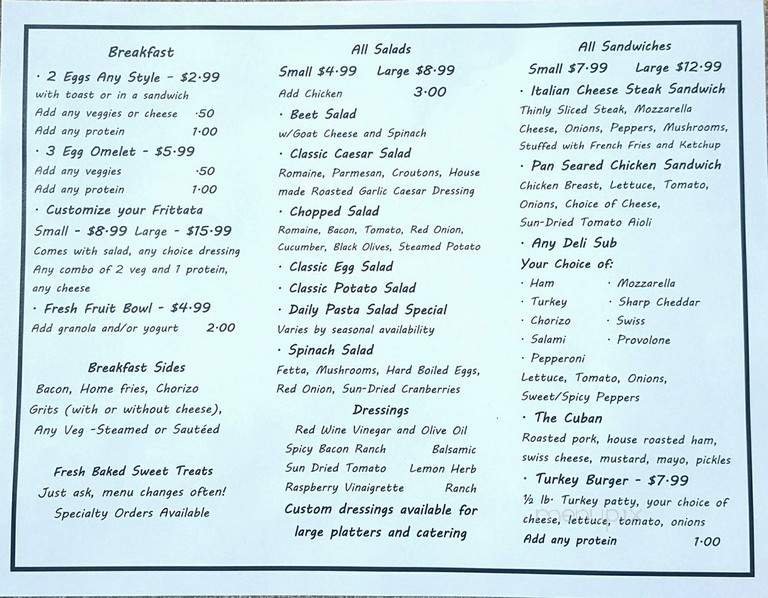 Breakfast
· 2 Eggs Any Style - $2.99
with toast or in a sandwich
Add any veggies or cheese .50
Add any protein 1.00
· 3 Egg Omelet - $5.99
Add any veggies .50
Add any protein 1.00
· Customize your Frittata
Small - $8.99 Large - $15.99
Comes with salad, any choice dressing
Any combo of 2 veg and 1 protein,
any cheese
· Fresh Fruit Bowl - $4.99
Add granola and/or yogurt 2.00
Breakfast Sides
Bacon, Home fries, Chorizo
Grits (with or without cheese),
Any Veg -Steamed or Sautéed
Fresh Baked Sweet Treats
Just ask, menu changes often!
Specialty Orders Available
All Salads
Small $4.99 Large $8.99
Add Chicken 3.00
· Beet Salad
w/Goat Cheese and Spinach
· Classic Caesar Salad
Romaine, Parmesan, Croutons, House
made Roasted Garlic Caesar Dressing
· Chopped Salad
Romaine, Bacon, Tomato, Red Onion,
Cucumber, Black Olives, Steamed Potato
· Classic Egg Salad
· Classic Potato Salad
· Daily Pasta Salad Special
Varies by seasonal availability
· Spinach Salad
Fetta, Mushrooms, Hard Boiled Eggs,
Red Onion, Sun-Dried Cranberries
Dressings
Red Wine Vinegar and Olive Oil
Spicy Bacon Ranch Balsamic
Sun Dried Tomato Lemon Herb
Raspberry Vinaigrette Ranch
Custom dressings available for
large platters and catering
All Sandwiches
Small $7.99 Large $12.99
· Italian Cheese Steak Sandwich
Thinly Sliced Steak, Mozzarella
Cheese, Onions, Peppers, Mushrooms,
Stuffed with French Fries and Ketchup
· Pan Seared Chicken Sandwich
Chicken Breast, Lettuce, Tomato,
Onions, Choice of Cheese,
Sun-Dried Tomato Aioli
· Any Deli Sub
Your Choice of:
· Ham · Mozzarella
· Turkey · Sharp Cheddar
· Chorizo · Swiss
· Salami · Provolone
· Pepperoni
Lettuce, Tomato, Onions,
Sweet/Spicy Peppers
· The Cuban
Roasted pork, house roasted ham,
swiss cheese, mustard, mayo, pickles
· Turkey Burger - $7.99
½ lb. Turkey patty, your choice of
cheese, lettuce, tomato, onions
Add any protein 1.00
menupix